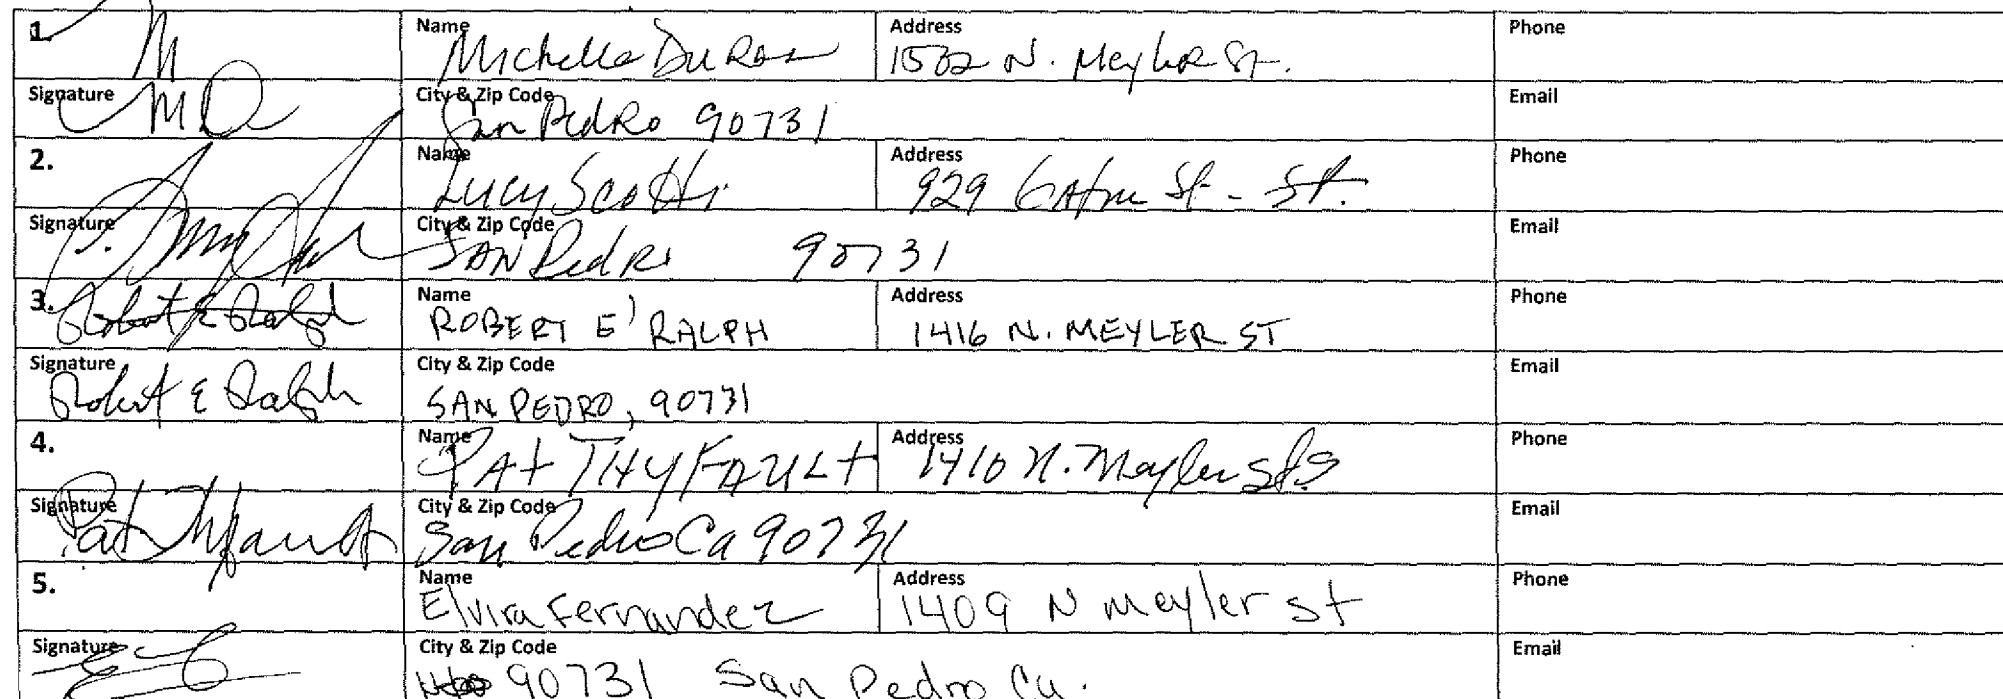 1. Name Michelle DuRan Address 1502 N. Meyler St. Phone
Signature City & Zip Code San Pedro 90731 Email
2. Name Lucy Scotti Address 929 St - St. Phone
Signature City & Zip Code SAN Pedro 90731 Email
3. Robert E Ralph Name ROBERT E' RALPH Address 1416 N. MEYLER ST Phone
Signature Robert E Ralph City & Zip Code SAN PEDRO, 90731 Email
4. Name PAt THYFAULt Address 1410 N. Meyler St. Phone
Signature Pat Thyfault City & Zip Code San Pedro Ca 90731 Email
5. Name Elvira Fernandez Address 1409 N Meyler St Phone
Signature City & Zip Code 90731 San Pedro Ca. Email